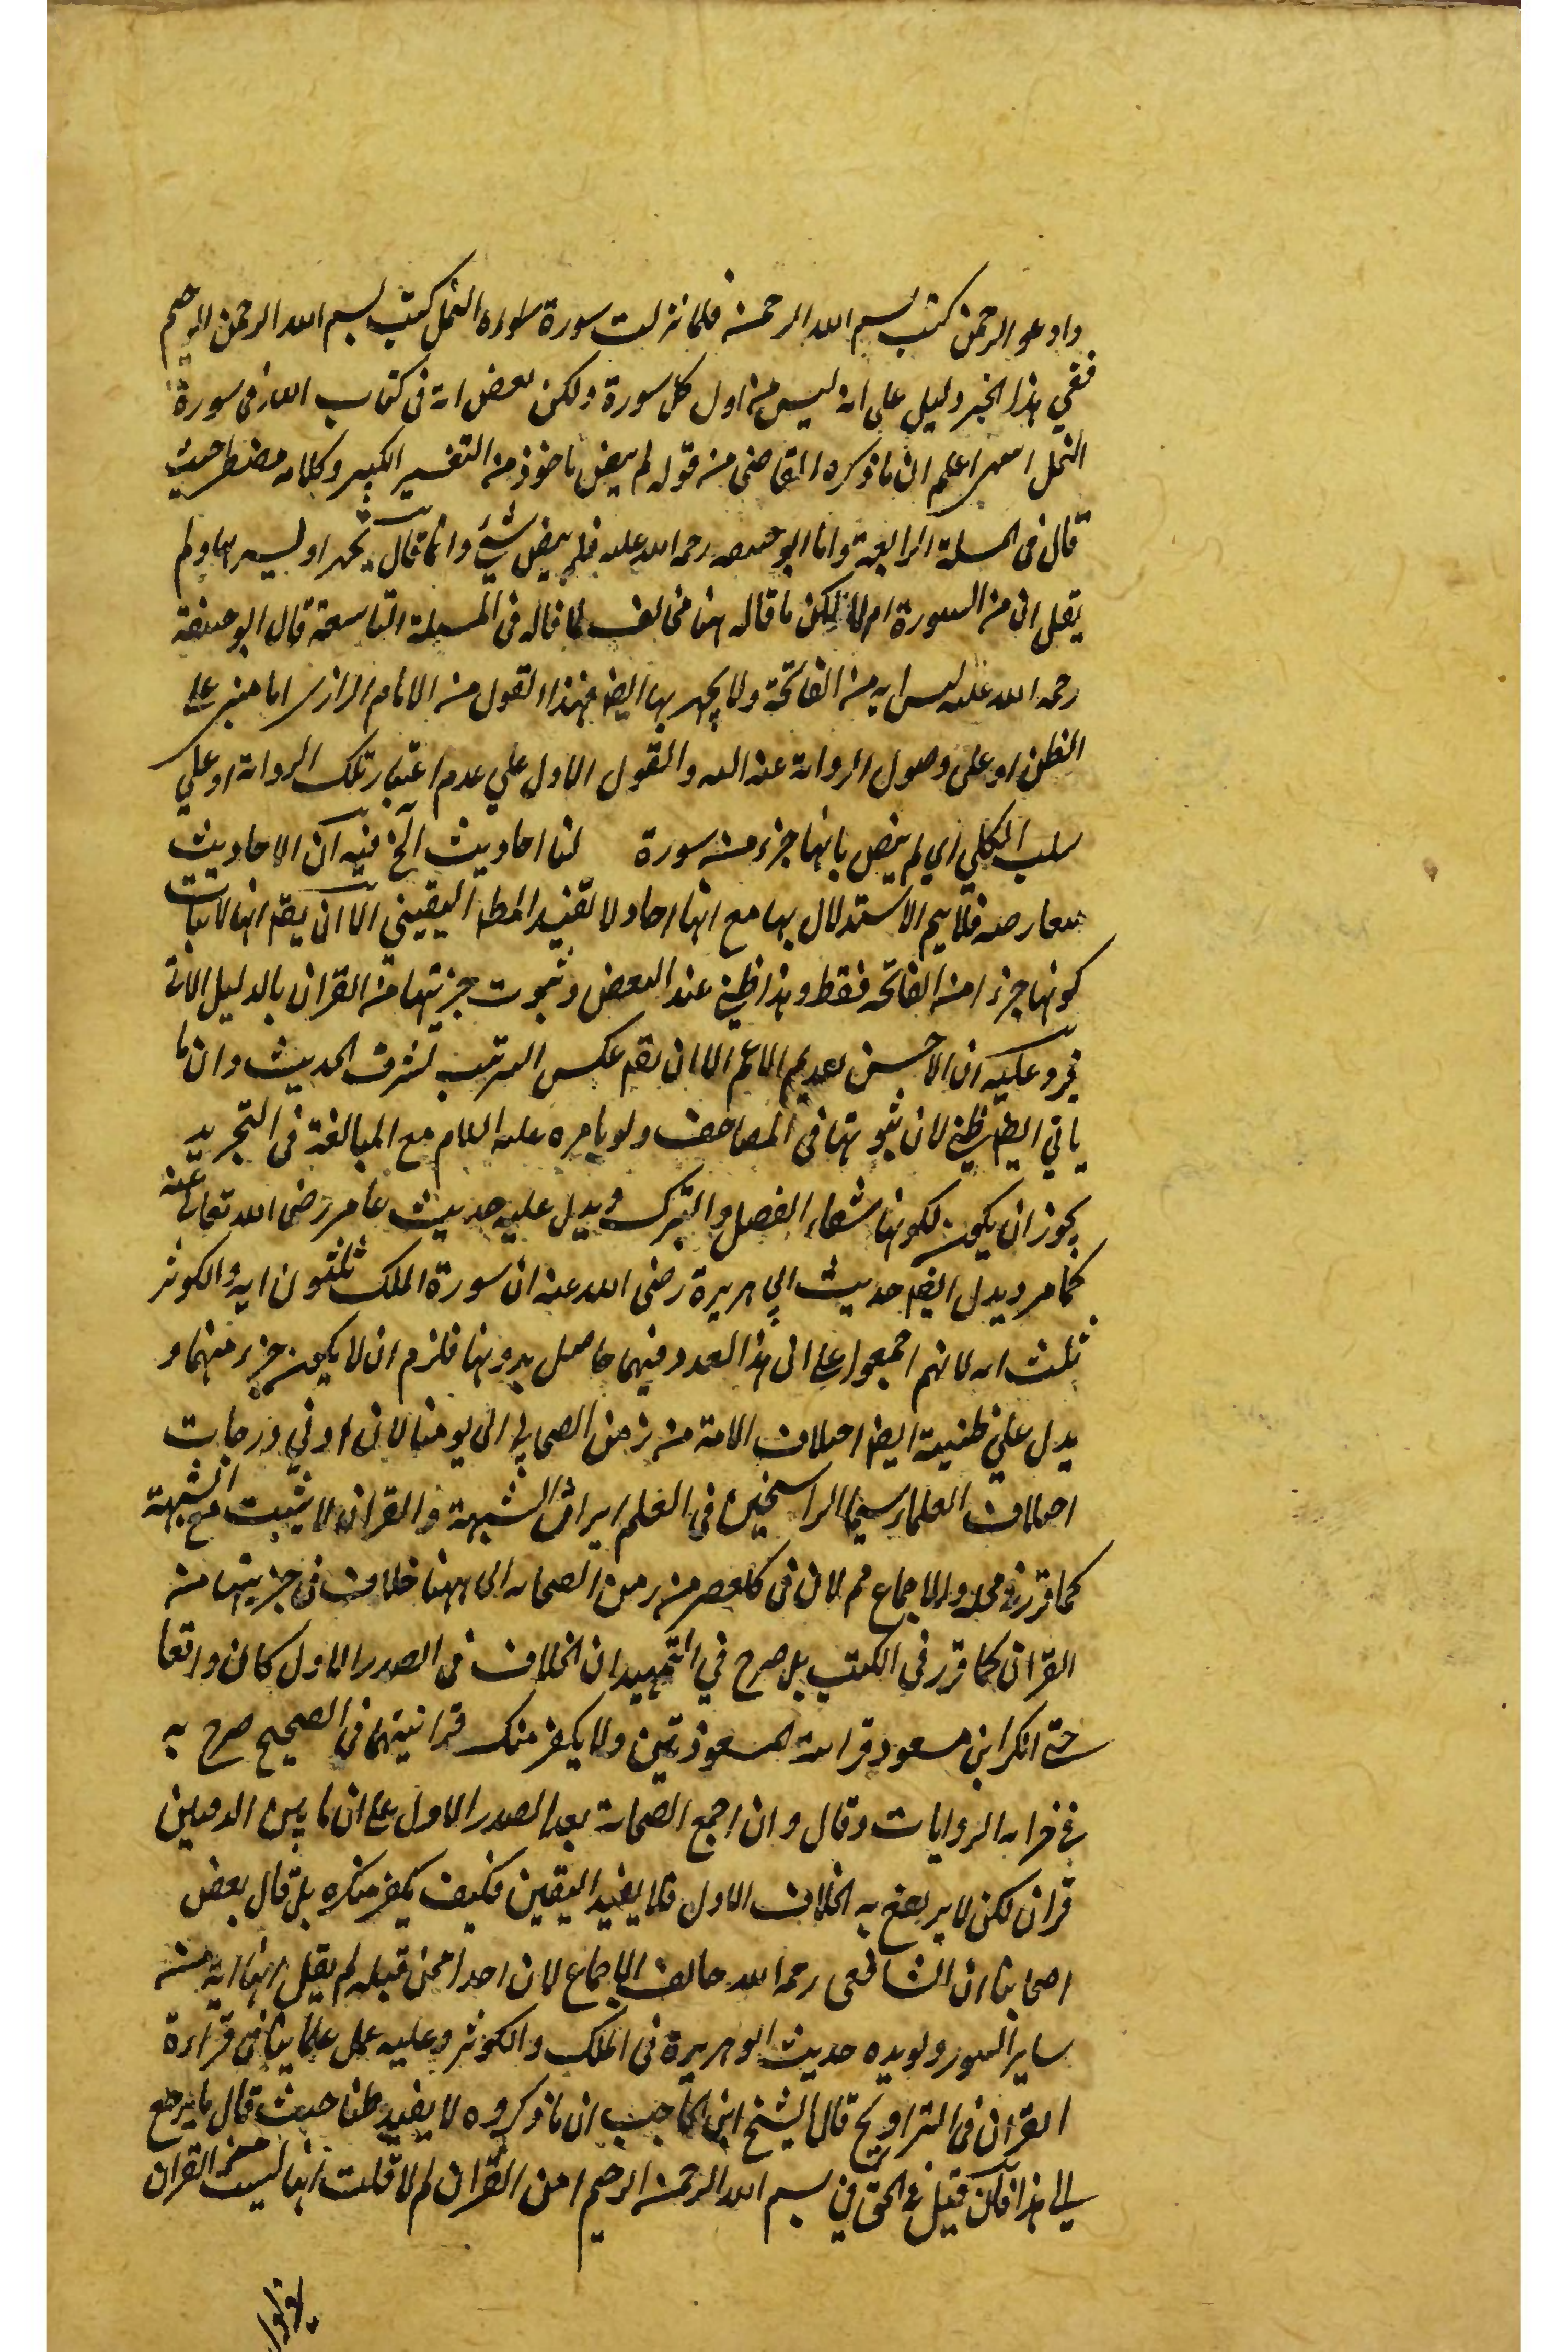 وادعوا الرحمن كتب بسم الله الرحمن فلما نزلت سورة سورة النمل كتب بسم الله الرحمن الرحيم
ففي هذا الخبر دليل على انه ليس من اول كل سورة ولكن بعض اية في كتاب الله في سورة
النمل انتهى اعلم ان ما ذكره القاضي من قوله لم ينص ماخوذ من التفسير الكبير وكلامه مضطر حيث
قال في المسلة الرابعة واما ابو حنيفه رحمه الله عليه فلم ينص بشيء وانما قال يجهر او يسر بها ولم
يقل انه من السورة ام لا لكن ما قاله هنا مخالف لما قاله في المسلة التاسعة قال ابو حنيفة
رحمه الله عليه ليس اية من الفاتحة ولا يجهر بها ايضا فهذا القول من الامام الرازي اما مبني على
الظن او على وصول الرواية عنه اليه والقول الاول علي عدم اعتبار تلك الرواية او علي
سلب الكلي اي لم ينص بانها جزء من سورة لنا احاديث الخ فيه ان الاحاديث
متعارضه فلا يتم الاستدلال بها مع انها احاد لا تفيد المط اليقيني الا ان يقم انها لاثبات
كونها جزءا من الفاتحة فقط وهذا ظني عند البعض وثبوت جزئيتها من القران بالدليل الاتي
فيرد عليه ان الاحسن تقديم الاعم الا ان يقم عكس الترتيب لشرف الحديث وان ما
ياتي ايضا ظني لان ثبوتها في المصاحف ولو بامره عليه السلام مع المبالغة في التجريد
يجوز ان يكون لكونها شعار الفصل والتبرك ويدل عليه حديث عامر رضى الله تعالى عنه
كما مر ويدل ايضا حديث ابي هريرة رضى الله عنه ان سورة الملك ثلثون اية والكوثر
ثلث اية لانهم اجمعوا على ان هذا العدد فيهما حاصل بدونها فلزم ان لا يكون جزء منهما و
يدل علي ظنيية ايضا اختلاف الامة من زمن الصحابة الى يومنا لان ادنى درجات
اختلاف العلماء سيما الراسخين في العلم ايراث الشبهة والقران لا يثبت مع الشبهة
كما قرر في محله والاجماع مم لان في كل عصر من زمن الصحابة الى ههنا خلاف في جزئيتها من
القران كما قرر في الكتب بل صرح في التمهيد ان الخلاف في الصدر الاول كان واقعا
حتى انكر ابن مسعود قرانية المعوذتين ولا يكفر منكر قرانيتهما في الصحيح صرح به
في خزانة الروايات وقال وان اجمع الصحابة بعد الصدر الاول على ان ما بين الدفتين
قران لكن لا يرتفع به الخلاف الاول فلا يفيد اليقين فكيف يكفر منكره بل قال بعض
اصحابنا ان الشافعى رحمه الله خالف الاجماع لان احدا ممن قبله لم يقل انها اية من
ساير السور ويويده حديث ابو هريرة في الملك والكوثر وعليه عمل علمائنا في قراءة
القران في التراويح قال الشيخ ابن الحاجب ان ما ذكروه لا يفيد ظنا حيث قال ما يرجع
الى هذا فان قيل فالحق في بسم الله الرحمن الرحيم امن القران ام لا قلت انها ليست من القران